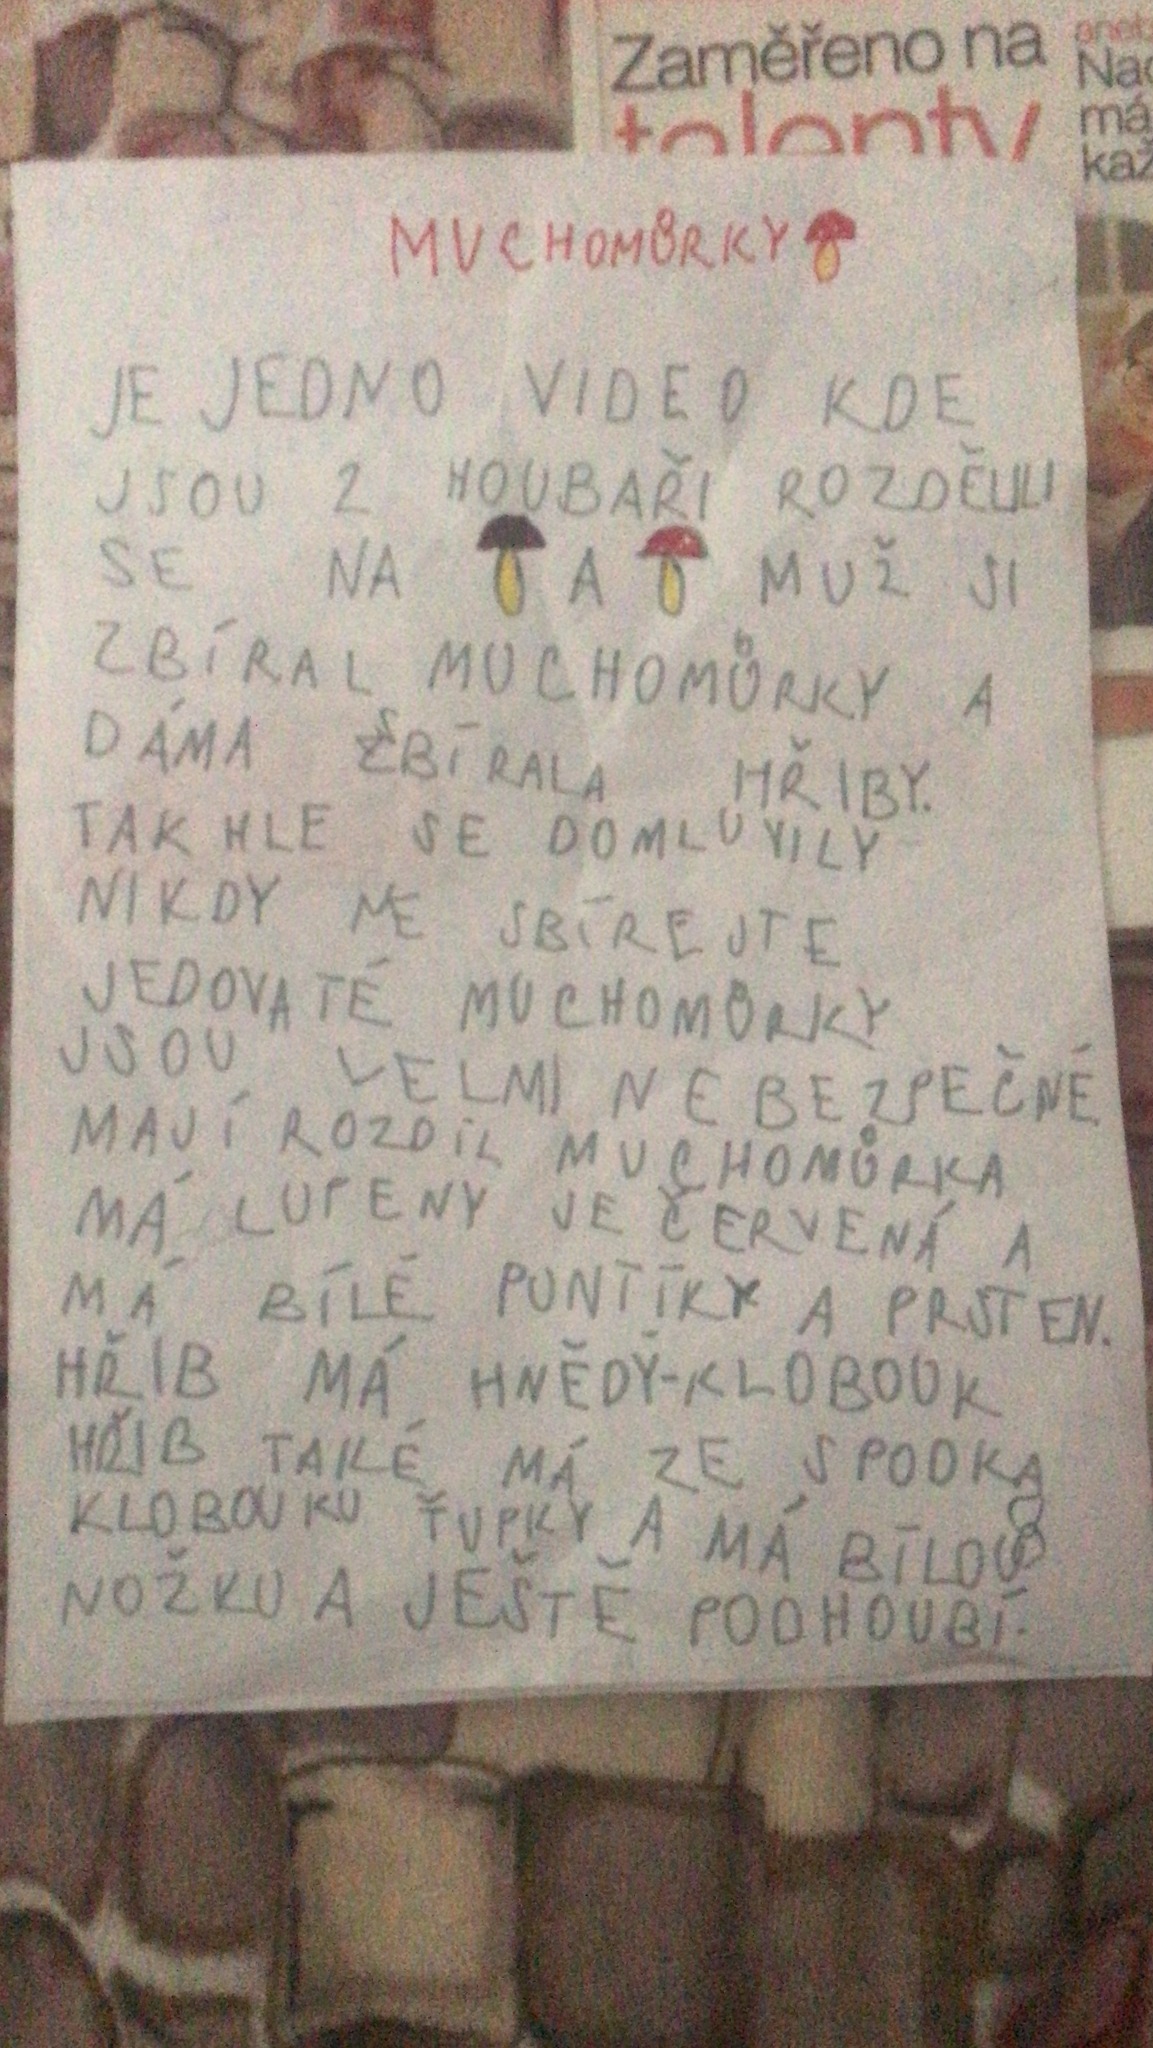 Zaměřeno na
talenty
MUCHOMŮRKY
JE JEDNO VIDEO KDE
JSOU 2 HOUBAŘI ROZDĚLILI
SE NA A MUŽ SI
ZBÍRAL MUCHOMŮRKY A
DÁMA SBÍRALA HŘIBY.
TAKHLE SE DOMLUVILY
NIKDY NE SBÍREJTE
JEDOVATÉ MUCHOMŮRKY
JSOU VELMI NEBEZPEČNÉ.
MAJÍ ROZDIL MUCHOMŮRKA
MÁ LUPENY JE ČERVENÁ A
MÁ BÍLÉ PUNTÍKY A PRSTEN.
HŘIB MÁ HNĚDÝ-KLOBOUK
HŘIB TAKÉ MÁ ZE SPODKA
KLOBOUKU ŤUPKY A MÁ BÍLOU
NOŽKU A JEŠTĚ PODHOUBÍ.